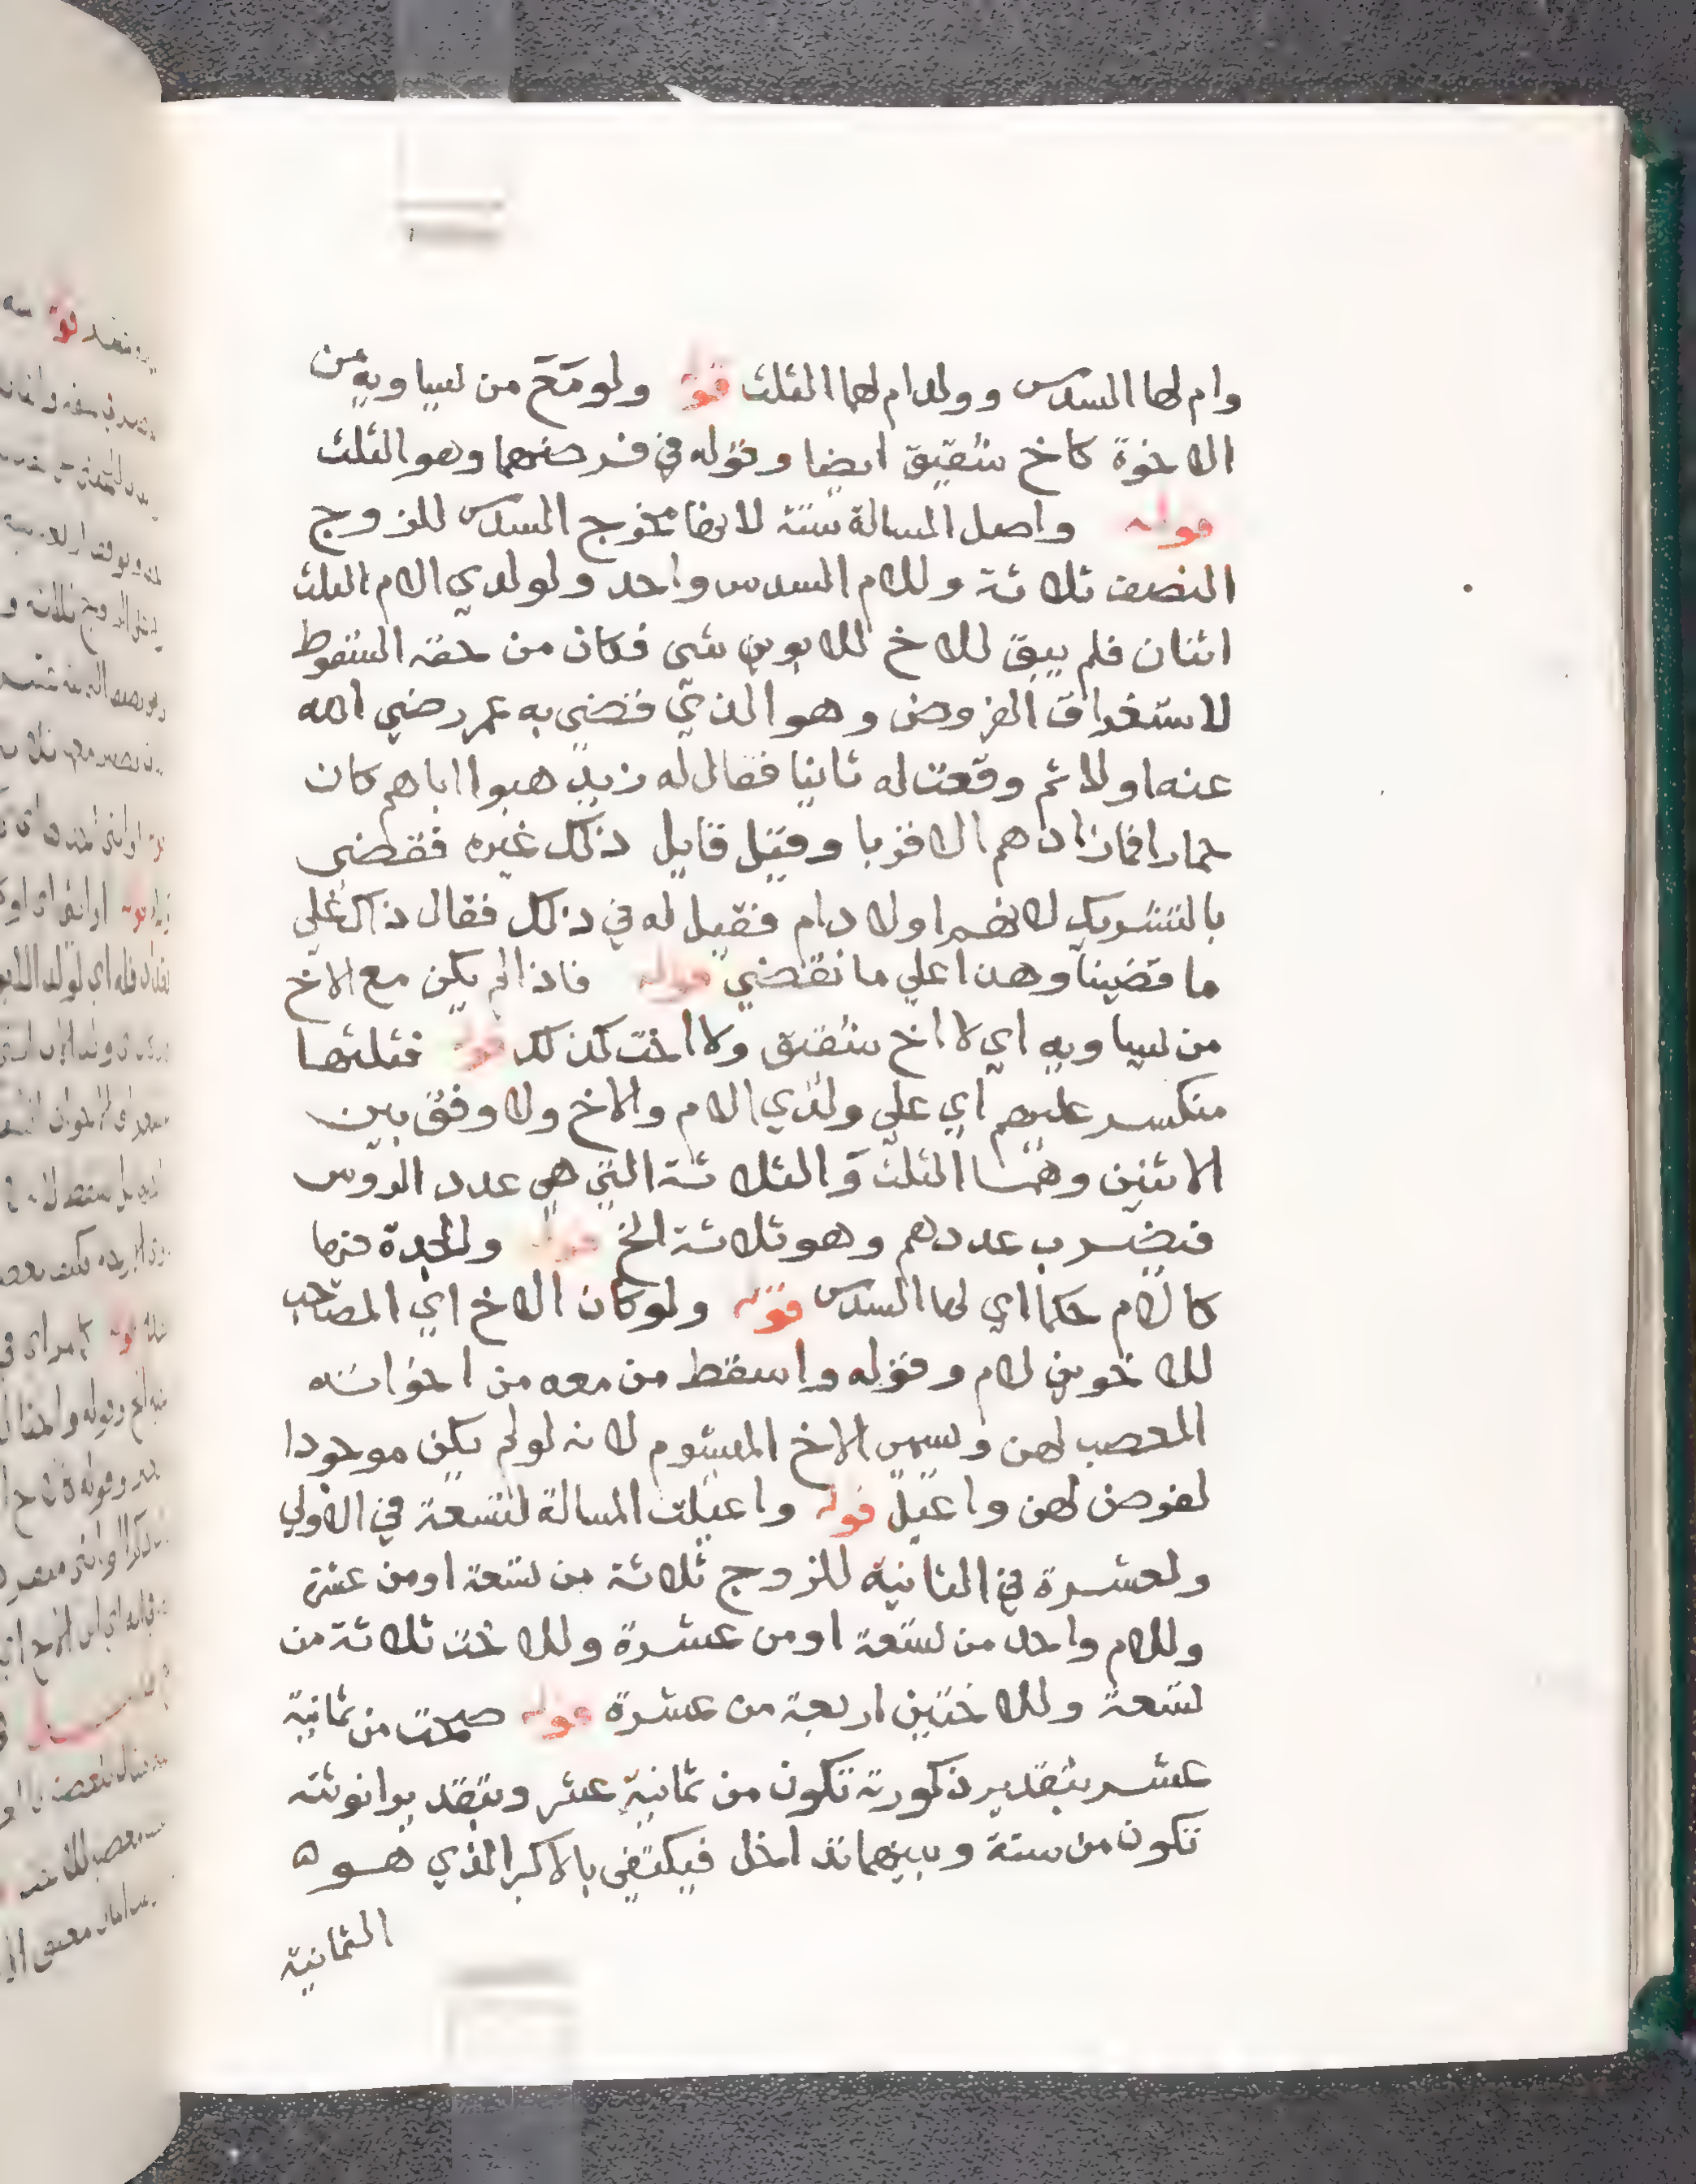 وام لها السدس وولدام لهما الثلث قوله ولو مَعَ من يساويه من
الاخوة كاخ شقيق ايضا وقوله في فرضهما وهو الثلث
قوله واصل المسالة ستة لانها مخرج السدس للزوج
النصف ثلاثة وللام السدس واحد ولولدي الام الثلث
اثنان فلم يبق للاخ للابوين شى فكان من حقه السقوط
لاستغراق الفروض وهو الذي قضى به عمر رضي الله
عنه اولا ثم وقعت له ثانيا فقال له زيد هبوا اباهم كان
حمارا فما زادهم الا قربا وقيل قايل ذلك غيره فقضى
بالتشريك لانهم اولاد ام فقيل له في ذلك فقال ذاك على
ما قضينا وهذا على ما نقضي قوله فاذا لم يكن مع الاخ
من يساويه اي لا اخ شقيق ولا اخت كذلك قوله فثلثها
منكسر عليهم اي على ولدي الام والاخ ولا وفق بين
الاثنين وهما الثلث والثلاثة التي هي عدد الروس
فيضرب عددهم وهو ثلاثة الخ قوله ولجدة منها
كالام حكما اي لها السدس قوله ولو كان الاخ اي المصاحب
للاخوين لام وقوله واسقط من معه من اخواته
المعصب لهن ويسمى الاخ الميشوم لانه لولم يكن موجودا
لفرض لهن واعيل قوله واعيلت المسالة لتسعة في الاولي
ولعشرة في الثانية للزوج ثلاثة من تسعة او من عشرة
وللام واحد من تسعة او من عشرة وللاخت ثلاثة من
تسعة وللاختين اربعة من عشرة قوله صحت من ثمانية
عشر بتقدير ذكورته تكون من ثمانية عشر وبتقدير انوثته
تكون من ستة وبينهما تداخل فيكتفى بالاكبر الذي هو ه
الثمانية